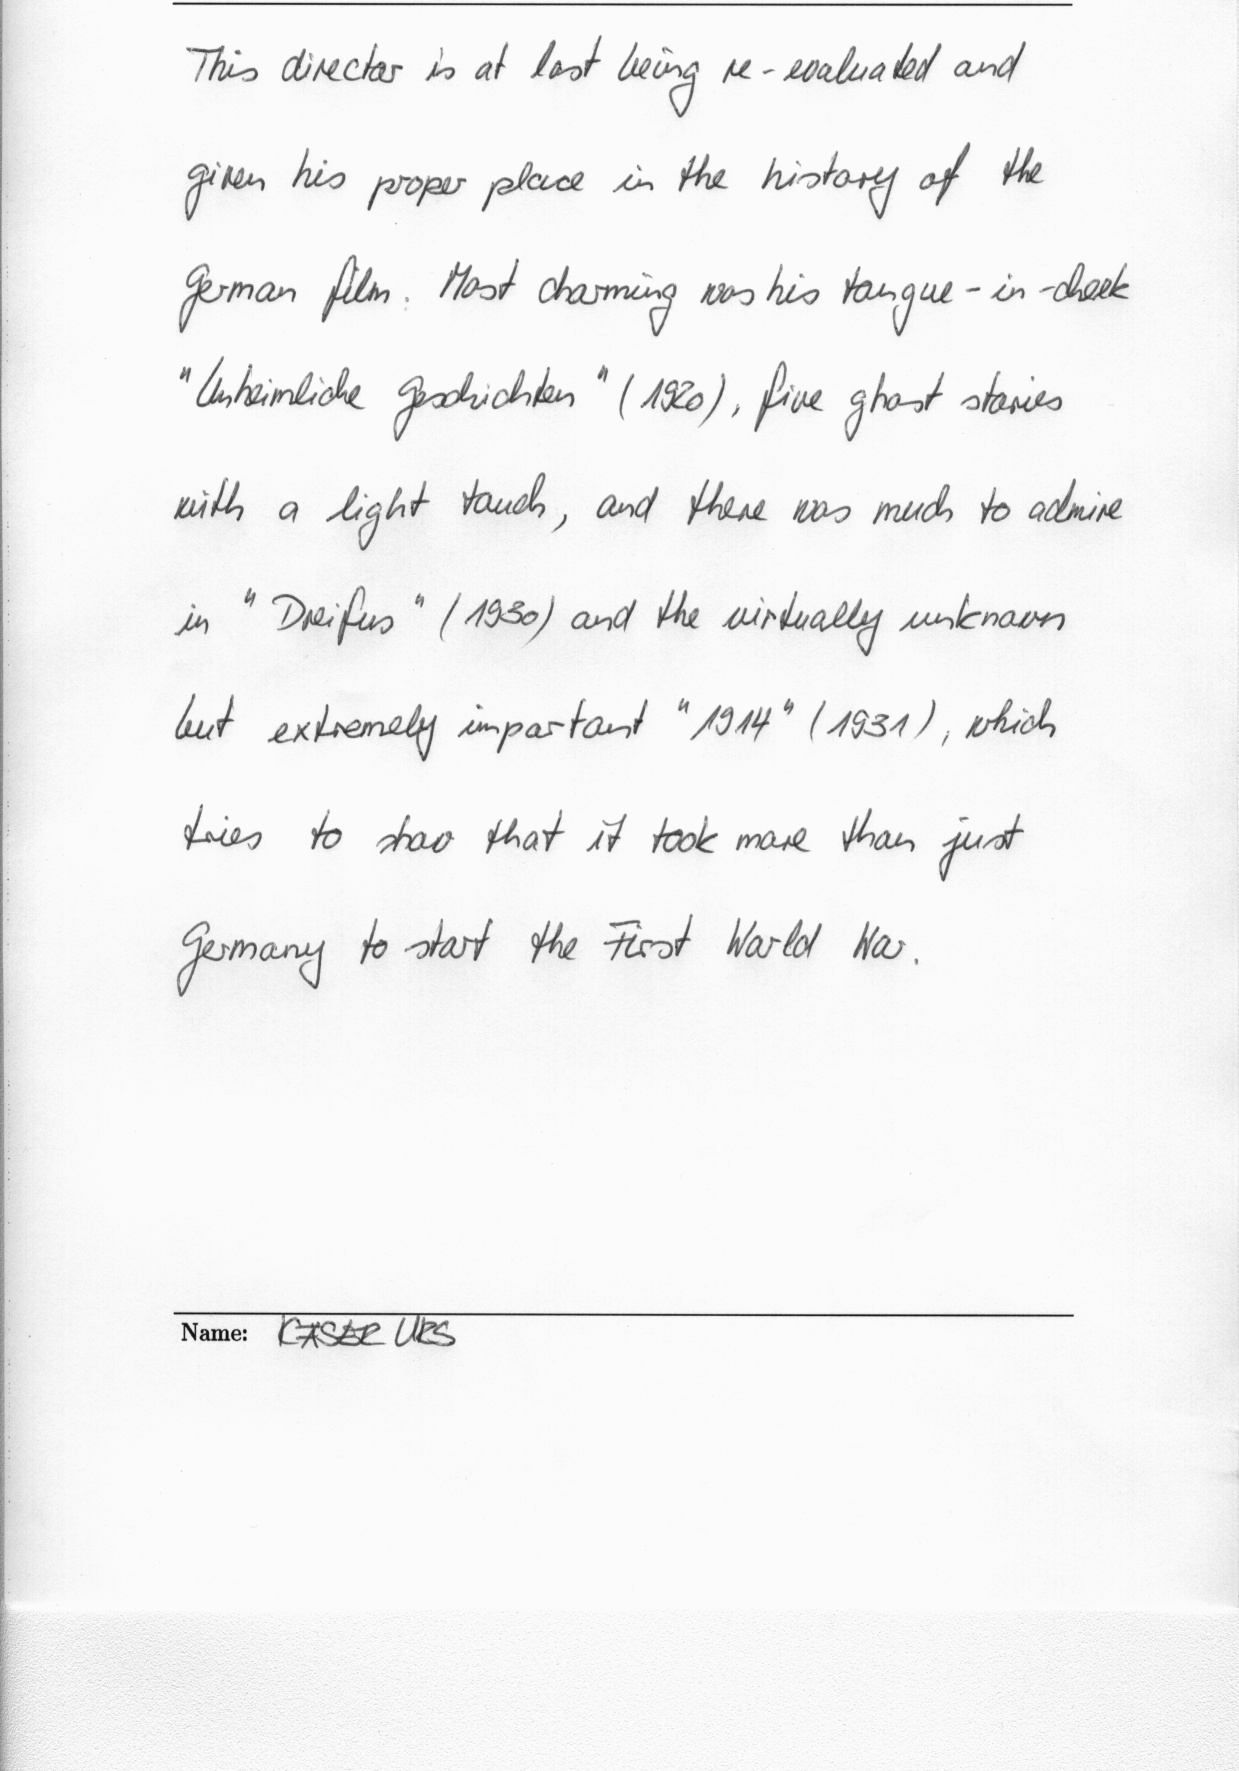 This director is at last being re-evaluated and
given his proper place in the history of the
German film. Most charming was his tongue-in-cheek
"Unheimliche Geschichten" (1920), five ghost stories
with a light touch, and there was much to admire
in "Dreifus" (1930) and the virtually unknown
but extremely important "1914" (1931), which
tries to show that it took more than just
Germany to start the First World War.
Name: KÄSER URS